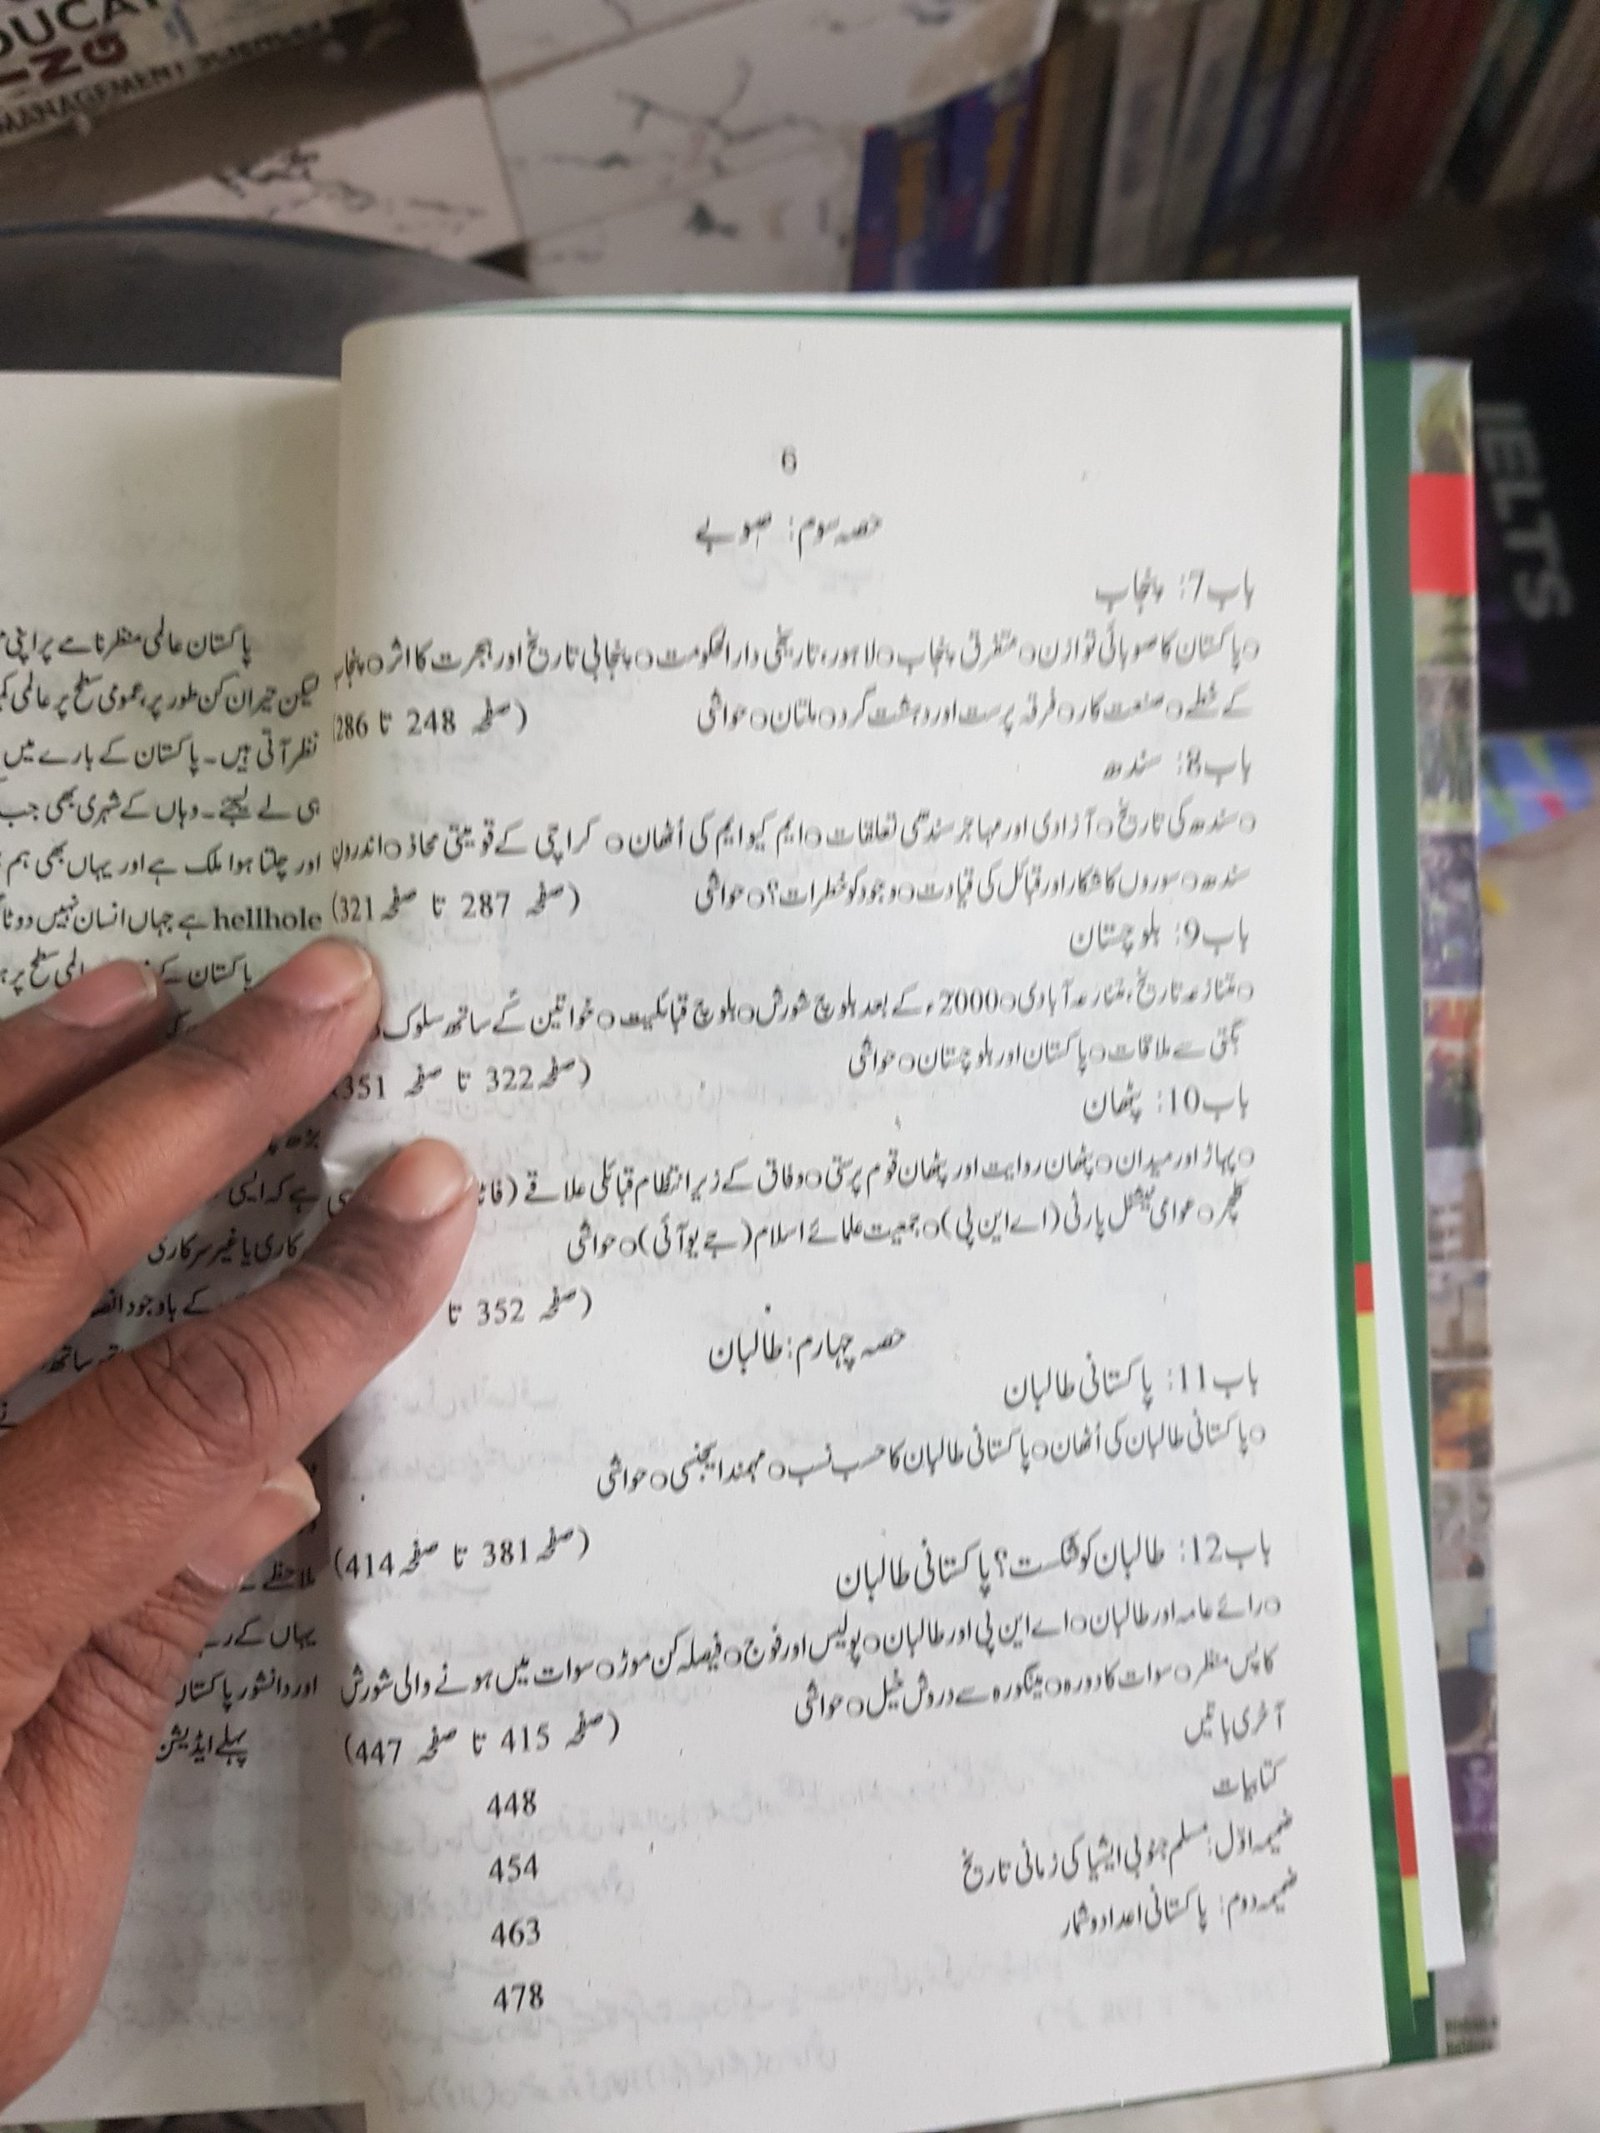 EDUCA
ING
MANAGEMENT SCIENCES
IELTS
6
حصہ سوم: صوبے
باب 7: پنجاب
○پاکستان کا صوبائی توازن○متفرق پنجاب○لاہور، تاریخی دارالحکومت○پنجابی تاریخ اور ہجرت کا اثر○پنجاب
کے خطے○صنعت کار○فرقہ پرست اور دہشت گرد○ملتان○حواشی (صفحہ 248 تا 286
باب 8: سندھ
○سندھ کی تاریخ○آزادی اور مہاجر سندھی تعلقات○ایم کیو ایم کی اُٹھان○کراچی کے قومیتی محاذ○اندرون
سندھ○سوروں کا شکار اور قبائل کی قیادت○وجود کو خطرات؟○حواشی (صفحہ 287 تا صفحہ 321)
باب 9: بلوچستان
○متنازعہ تاریخ، متنازعہ آبادی○2000ء کے بعد بلوچ شورش○بلوچ قبائلیت○خواتین کے ساتھ سلوک
بگٹی سے ملاقات○پاکستان اور بلوچستان○حواشی (صفحہ 322 تا صفحہ 351
باب 10: پٹھان
○پہاڑ اور میدان○پٹھان روایت اور پٹھان قوم پرستی○وفاق کے زیر انتظام قبائلی علاقے (فاٹا
کلچر○عوامی نیشنل پارٹی (اے این پی)○جمعیت علمائے اسلام (جے یو آئی)○حواشی
(صفحہ 352 تا
حصہ چہارم: طالبان
باب 11: پاکستانی طالبان
○پاکستانی طالبان کی اُٹھان○پاکستانی طالبان کا حسب نسب○مہمند ایجنسی○حواشی
(صفحہ 381 تا صفحہ 414)
باب 12: طالبان کو شکست؟ پاکستانی طالبان
○رائے عامہ اور طالبان○اے این پی اور طالبان○پولیس اور فوج○فیصلہ کن موڑ○سوات میں ہونے والی شورش
کا پس منظر○سوات کا دورہ○مینگورہ سے دروش خیل○حواشی (صفحہ 415 تا صفحہ 447)
آخری باتیں 448
کتابیات 454
ضمیمہ اوّل: مسلم جنوبی ایشیا کی زمانی تاریخ 463
ضمیمہ دوم: پاکستانی اعداد و شمار 478
پاکستان عالمی منظرنامے پر اپنی
لیکن حیران کن طور پر، عمومی سطح پر عالمی
نظر آتی ہیں۔ پاکستان کے بارے میں
ہی لے لیجئے۔ وہاں کے شہری بھی جب
اور چلتا ہوا ملک ہے اور یہاں بھی ہم
hellhole ہے جہاں انسان نہیں
پاکستان کے سطح پر
ہے کہ ایسی
کاری یا غیر سرکاری
کے باوجود
ساتھ
ملاحظے
یہاں کے
اور دانشور پاکستان
پہلے ایڈیشن